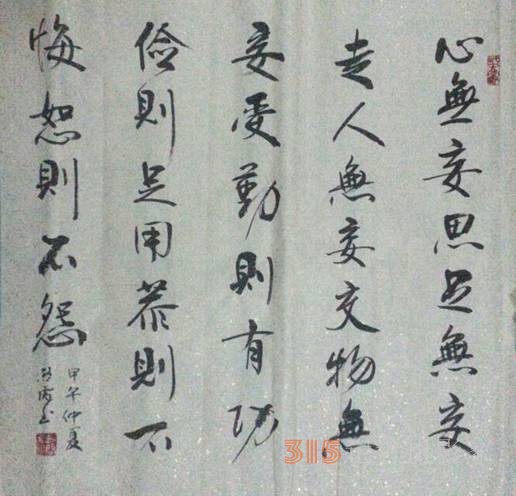 心無妄思足無妄
走人無妄交物無
妄受勤則有功
俭則足用恭則不
悔恕則不怨
甲午仲夏
书
315